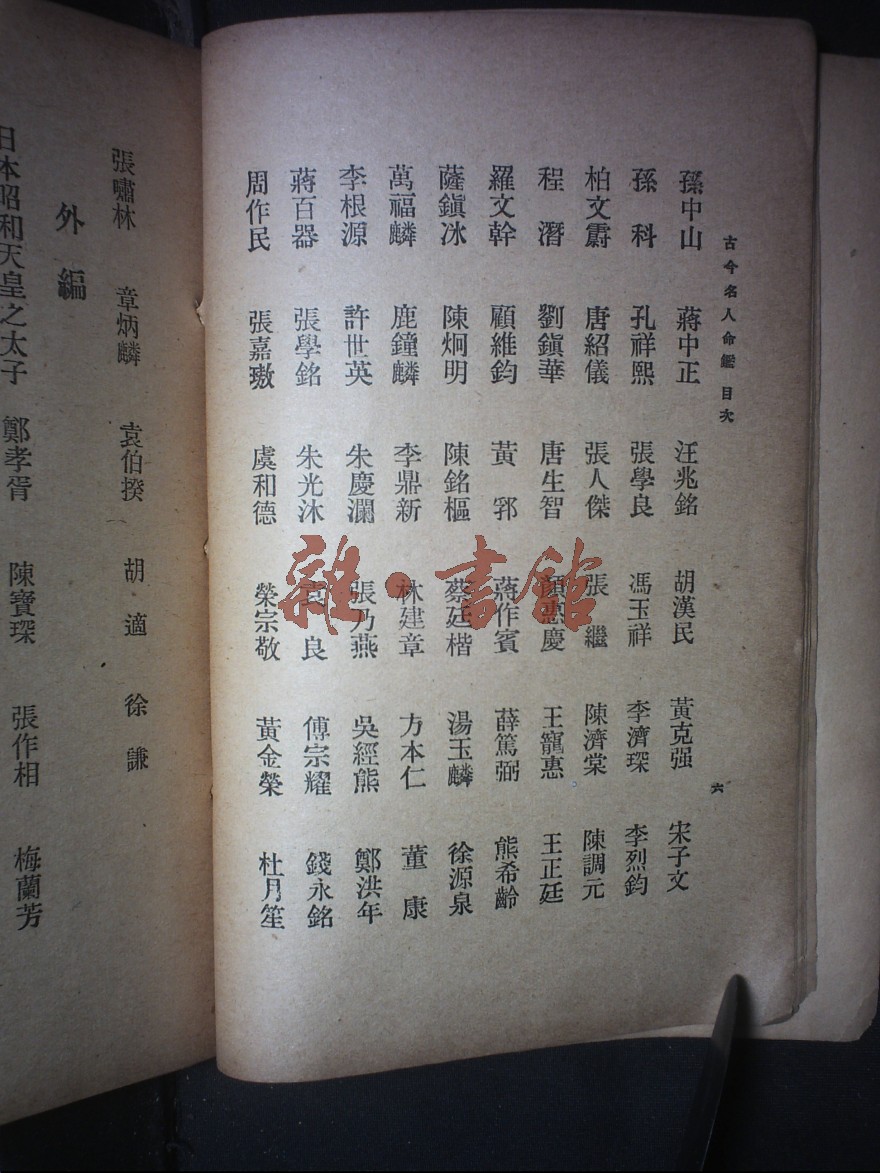 古今名人命鑑 目次 六
孫中山 蔣中正 汪兆銘 胡漢民 黃克强 宋子文
孫科 孔祥熙 張學良 馮玉祥 李濟琛 李烈鈞
柏文蔚 唐紹儀 張人傑 張繼 陳濟棠 陳調元
程潛 劉鎭華 唐生智 顏惠慶 王寵惠 王正廷
羅文幹 顧維鈞 黃郛 蔣作賓 薛篤弼 熊希齡
薩鎭冰 陳炯明 陳銘樞 蔡廷楷 湯玉麟 徐源泉
萬福麟 鹿鐘麟 李鼎新 林建章 方本仁 董康
李根源 許世英 朱慶瀾 張乃燕 吳經熊 鄭洪年
蔣百器 張學銘 朱光沐 袁良 傅宗耀 錢永銘
周作民 張嘉璈 虞和德 榮宗敬 黃金榮 杜月笙
張嘯林 章炳麟 袁伯揆 胡適 徐謙
外編
日本昭和天皇之太子 鄭孝胥 陳寶琛 張作相 梅蘭芳
雜·書館